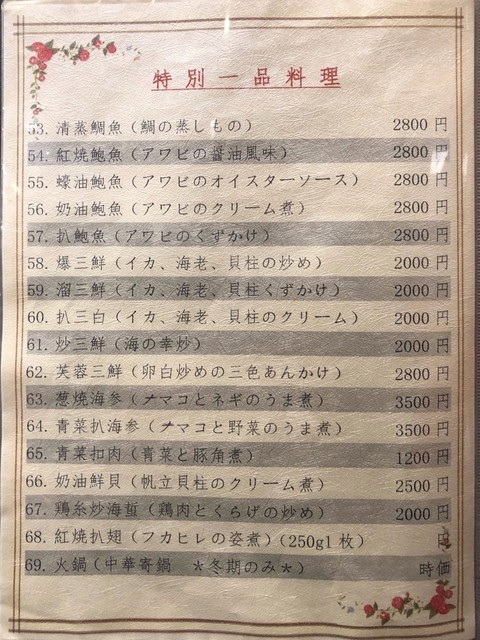 特別一品料理
53. 清蒸鯛魚（鯛の蒸しもの） 2800 円
54. 紅焼鮑魚（アワビの醤油風味） 2800 円
55. 蠔油鮑魚（アワビのオイスターソース） 2800 円
56. 奶油鮑魚（アワビのクリーム煮） 2800 円
57. 扒鮑魚（アワビのくずかけ） 2800 円
58. 爆三鮮（イカ、海老、貝柱の炒め） 2000 円
59. 溜三鮮（イカ、海老、貝柱くずかけ） 2000 円
60. 扒三白（イカ、海老、貝柱のクリーム） 2000 円
61. 炒三鮮（海の幸炒） 2000 円
62. 芙蓉三鮮（卵白炒めの三色あんかけ） 2800 円
63. 葱焼海参（ナマコとネギのうま煮） 3500 円
64. 青菜扒海参（ナマコと野菜のうま煮） 3500 円
65. 青菜扣肉（青菜と豚角煮） 1200 円
66. 奶油鮮貝（帆立貝柱のクリーム煮） 2500 円
67. 鶏糸炒海蜇（鶏肉とくらげの炒め） 2000 円
68. 紅焼扒翅（フカヒレの姿煮）(250g1枚） 円
69. 火鍋（中華寄鍋 ＊冬期のみ＊） 時価